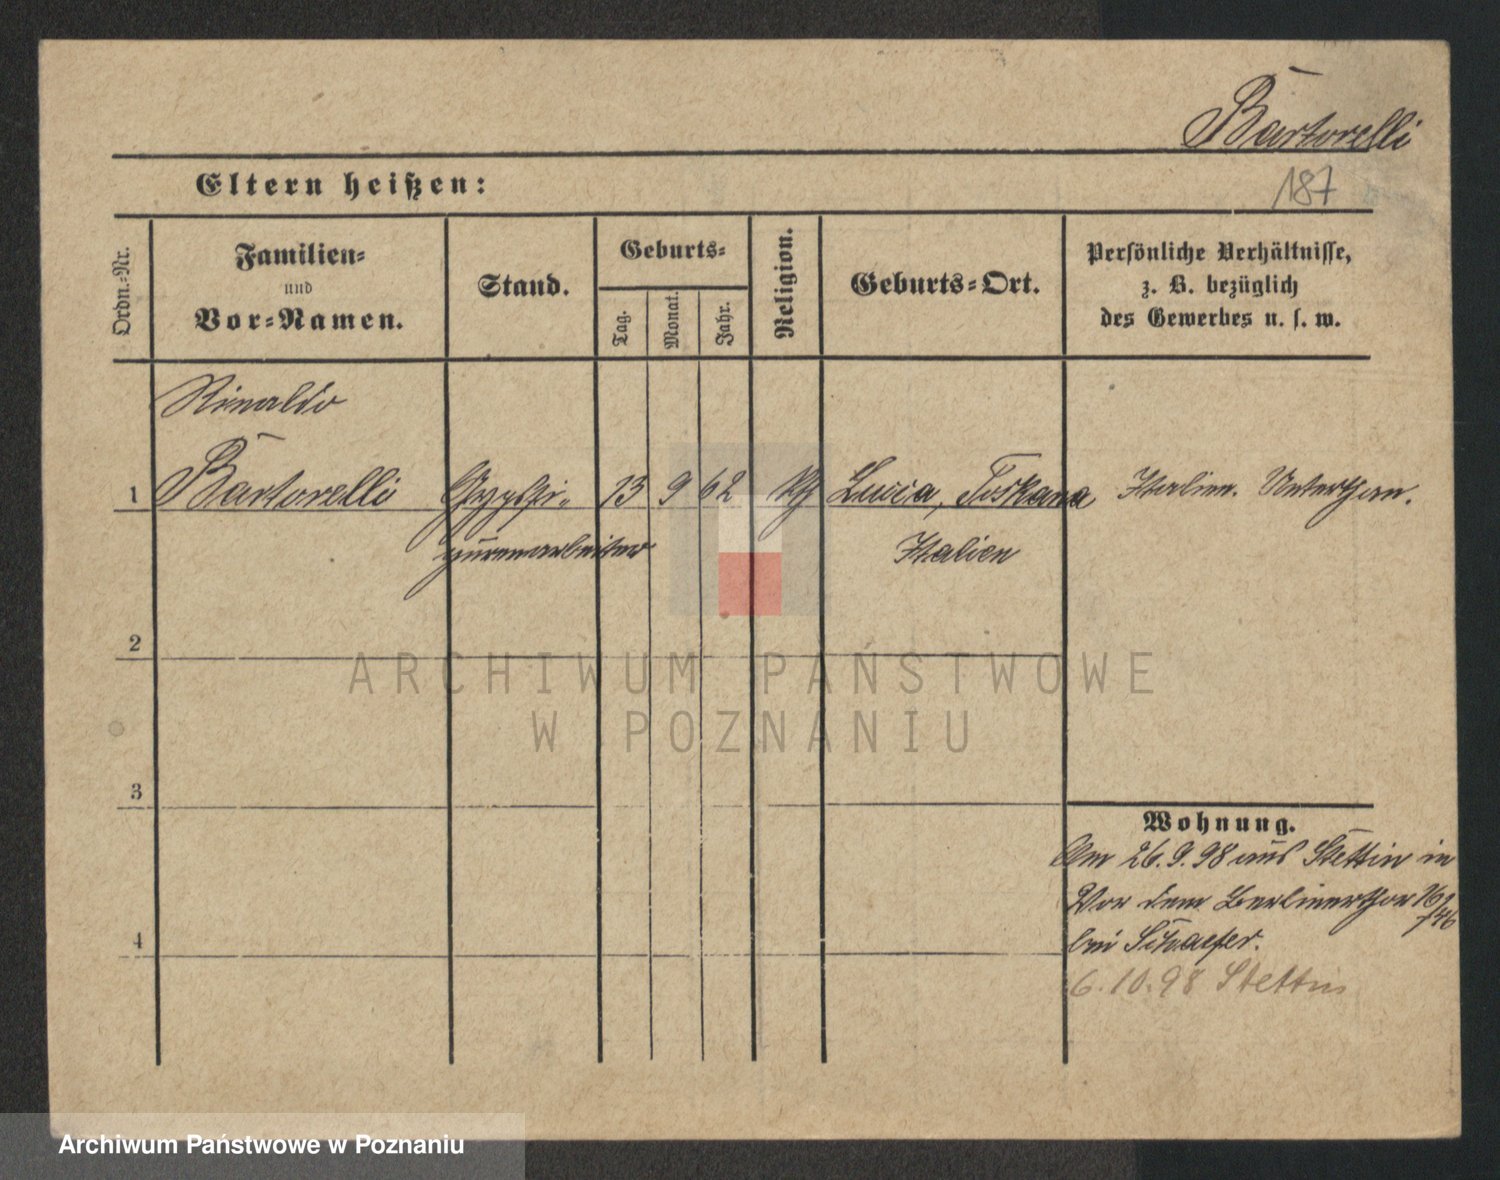 Bartorelli
Eltern heißen:
187
Ordn.-Nr.
Familien-
und
Vor-Namen.
Stand.
Geburts-
Tag.
Monat.
Jahr.
Religion.
Geburts-Ort.
Persönliche Verhältnisse,
z. B. bezüglich
des Gewerbes u. s. w.
Rinaldo
1 Bartorelli Gypsfi- 13 9 62 Lucia, Toskana Italien. Unterthan.
gurenarbeiter Italien
2
3
4
ARCHIWUM PAŃSTWOWE
W POZNANIU
Wohnung.
Am 26.9.98 aus Stettin in
Vor dem Berlinerthor
bei Schaefer.
6.10.98 Stettin
Archiwum Państwowe w Poznaniu